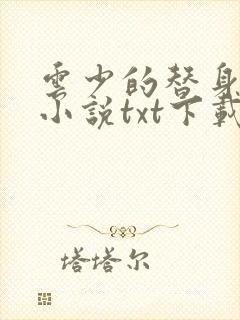 雲少的替身
小說txt下載
塔塔尔